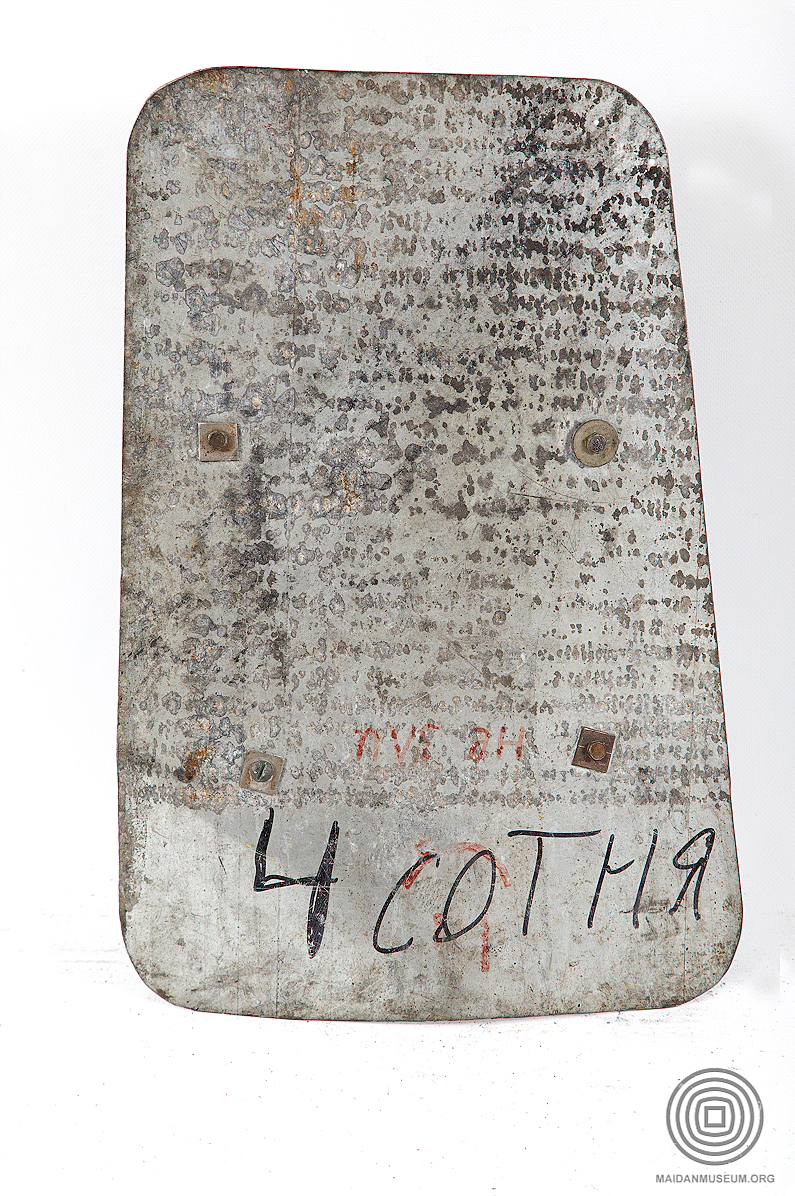 4 СОТНЯ
MAIDANMUSEUM.ORG